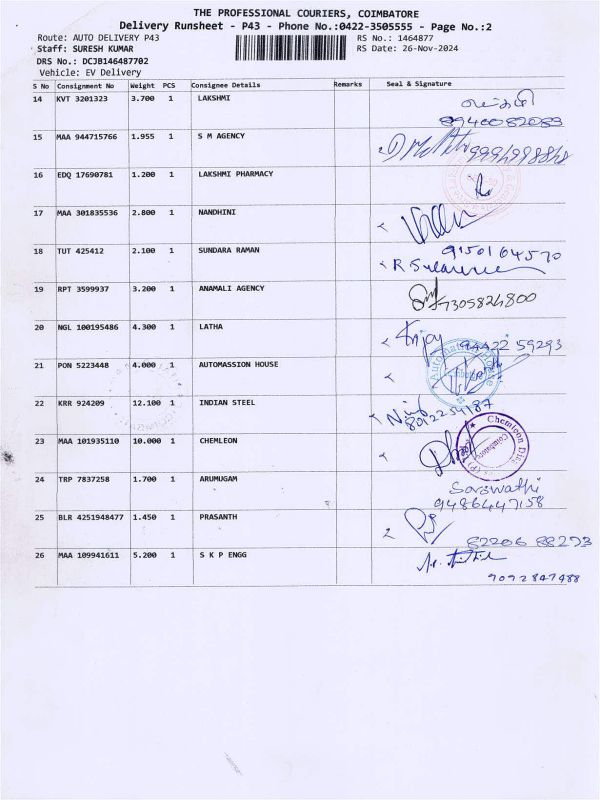 THE PROFESSIONAL COURIERS, COIMBATORE
Delivery Runsheet - P43 - Phone No.:0422-3505555 - Page No.:2
Route: AUTO DELIVERY P43 RS No.: 1464877
Staff: SURESH KUMAR RS Date: 26-Nov-2024
DRS No.: DCJB146487702
Vehicle: EV Delivery
S No Consignment No Weight PCS Consignee Details Remarks Seal & Signature
14 KVT 3201323 3.700 1 LAKSHMI
8940082089
15 MAA 944715766 1.955 1 S M AGENCY
16 EDQ 17690781 1.200 1 LAKSHMI PHARMACY
17 MAA 301835536 2.800 1 NANDHINI
18 TUT 425412 2.100 1 SUNDARA RAMAN 9150164570
19 RPT 3599937 3.200 1 ANAMALI AGENCY 7305824800
20 NGL 100195486 4.300 1 LATHA 94422 59293
21 PON 5223448 4.000 1 AUTOMASSION HOUSE
22 KRR 924209 12.100 1 INDIAN STEEL 8012254187
23 MAA 101935110 10.000 1 CHEMLEON
24 TRP 7837258 1.700 1 ARUMUGAM Saraswathi
9486447158
25 BLR 4251948477 1.450 1 PRASANTH
82206 88273
26 MAA 109941611 5.200 1 S K P ENGG
9092847488